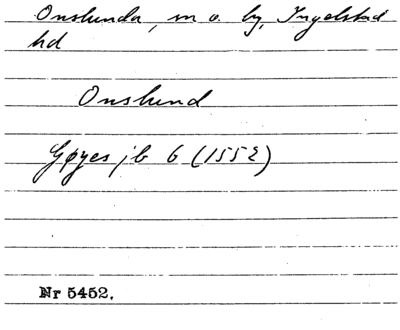 Onslunda, sn o. by, Ingelstad
hd
Onslund
Gøyes jb 6 (1552)
Nr 5452.